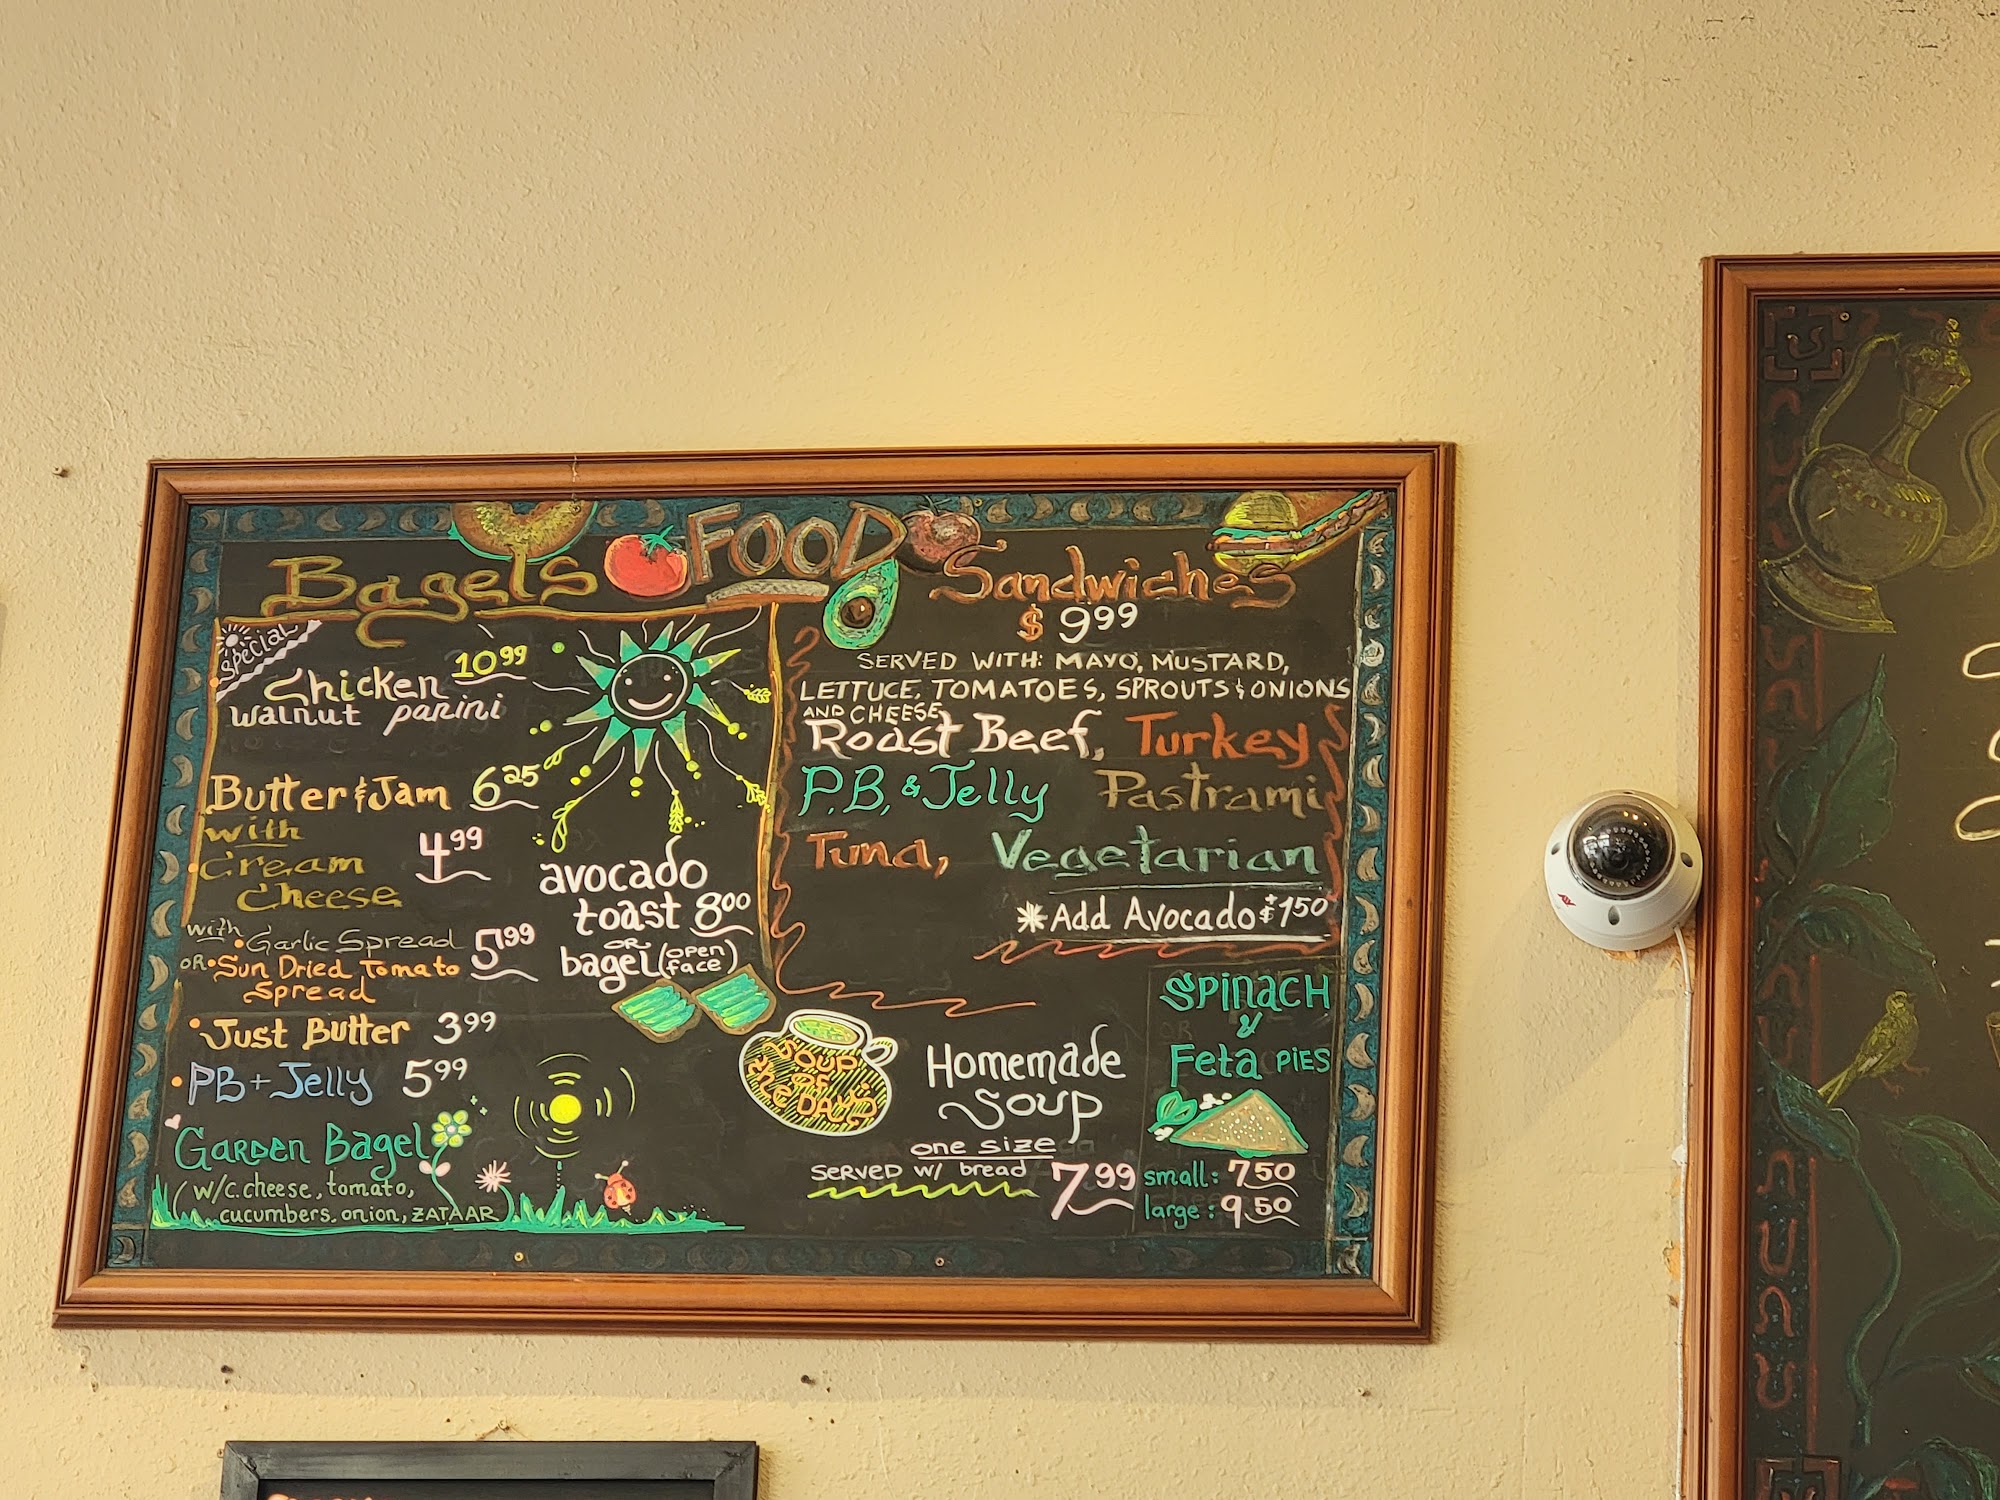 FOOD
Bagels
Special
Chicken 10 99
walnut panini
Butter & Jam 6 25
with
Cream 4 99
Cheese
with • Garlic Spread 5 99
OR • Sun Dried Tomato
Spread
• Just Butter 3 99
• PB + Jelly 5 99
Garden Bagel
w/c.cheese, tomato,
cucumbers, onion, ZATAAR
avocado
toast 8 00
OR
bagel (open
face)
Sandwiches
$ 9 99
SERVED WITH: MAYO, MUSTARD,
LETTUCE, TOMATOES, SPROUTS & ONIONS
AND CHEESE
Roast Beef, Turkey
P.B. & Jelly Pastrami
Tuna, Vegetarian
Add Avocado $1 50
SOUP
OF
the DAY
Homemade
Soup
one size
SERVED w/ bread 7 99
SPINACH
&
Feta PIES
small: 7 50
large: 9.50